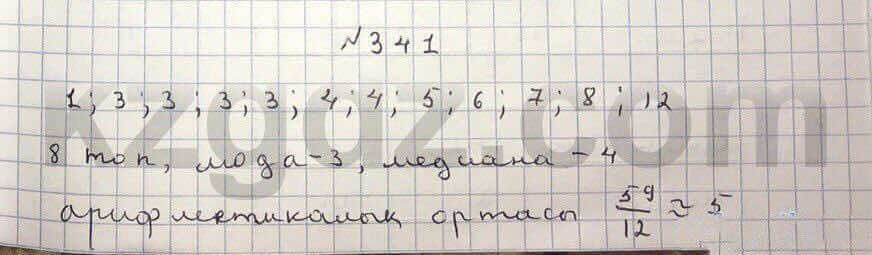 №341
1; 3; 3; 3; 3; 4; 4; 5; 6; 7; 8; 12
8 топ, мода-3, медиана-4
арифметикалық ортасы 59/12 ≈ 5
kzgdz.com